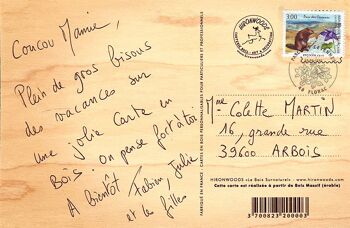 Coucou Mamie,
Plein de gros bisous
des vacances sur
une jolie carte en
Bois. on pense fort à toi
A bientôt Fabien, Julie
et les filles
HIRONWOODS
3,00
Parc des Cévennes
48 FLORAC
Mme Colette MARTIN
16, grande rue
39600 ARBOIS
HIRONWOODS «Le Bois Surnaturel» www.hironwoods.com
Cette carte est réalisée à partir de Bois Massif (érable)
3 700823 200003
FABRIQUÉ EN FRANCE - CARTES EN BOIS PERSONNALISABLES POUR PARTICULIERS ET PROFESSIONNELS